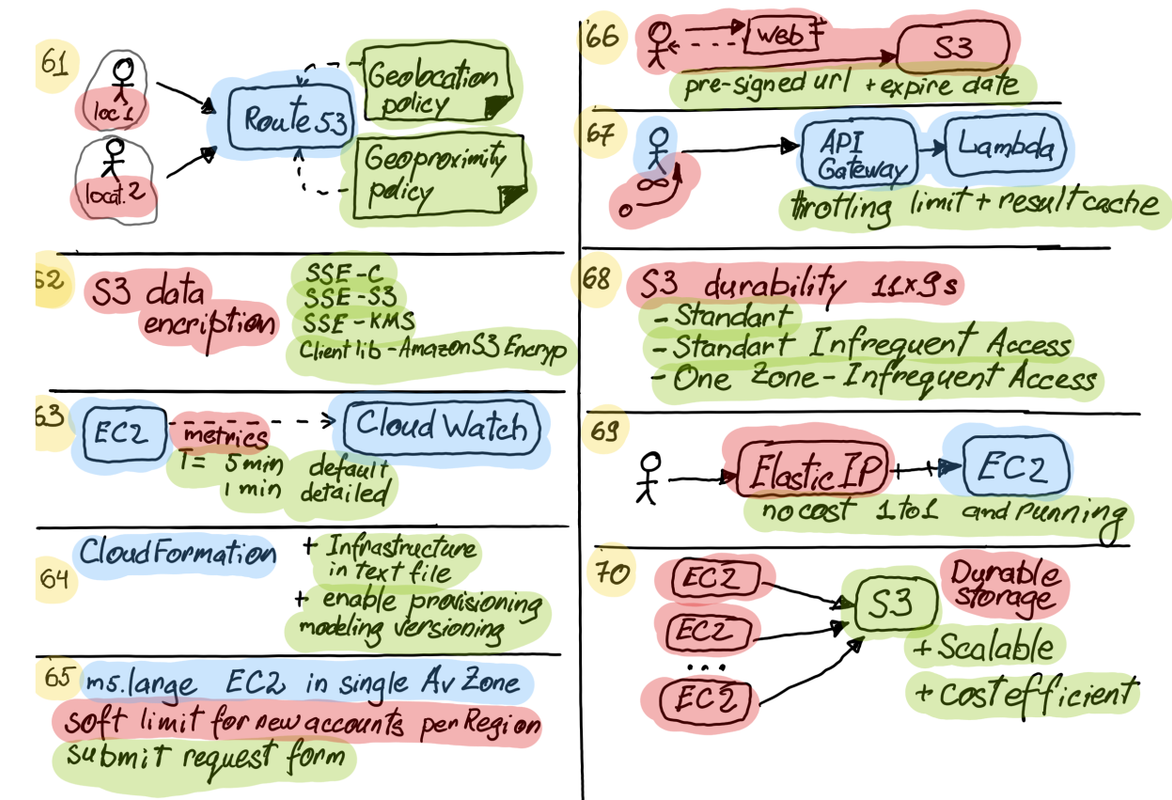 61
loc1
locat.2
Route 53
Geolocation
policy
Geoproximity
policy
62
S3 data
encription
SSE-C
SSE-S3
SSE-KMS
Client lib - Amazon S3 Encryp
63
EC2
metrics
Cloud Watch
T= 5 min default
1 min detailed
64
CloudFormation
+ Infrastructure
in text file
+ enable provisioning
modeling versioning
65
m5.large EC2 in single Av Zone
soft limit for new accounts per Region
submit request form
66
web
S3
pre-signed url + expire date
67
∞
API
Gateway
Lambda
throtling limit + result cache
68
S3 durability 11x9s
- Standart
- Standart Infrequent Access
- One Zone - Infrequent Access
69
Elastic IP
EC2
no cost 1 to 1 and running
70
EC2
EC2
...
EC2
S3
Durable
storage
+ Scalable
+ Cost efficient